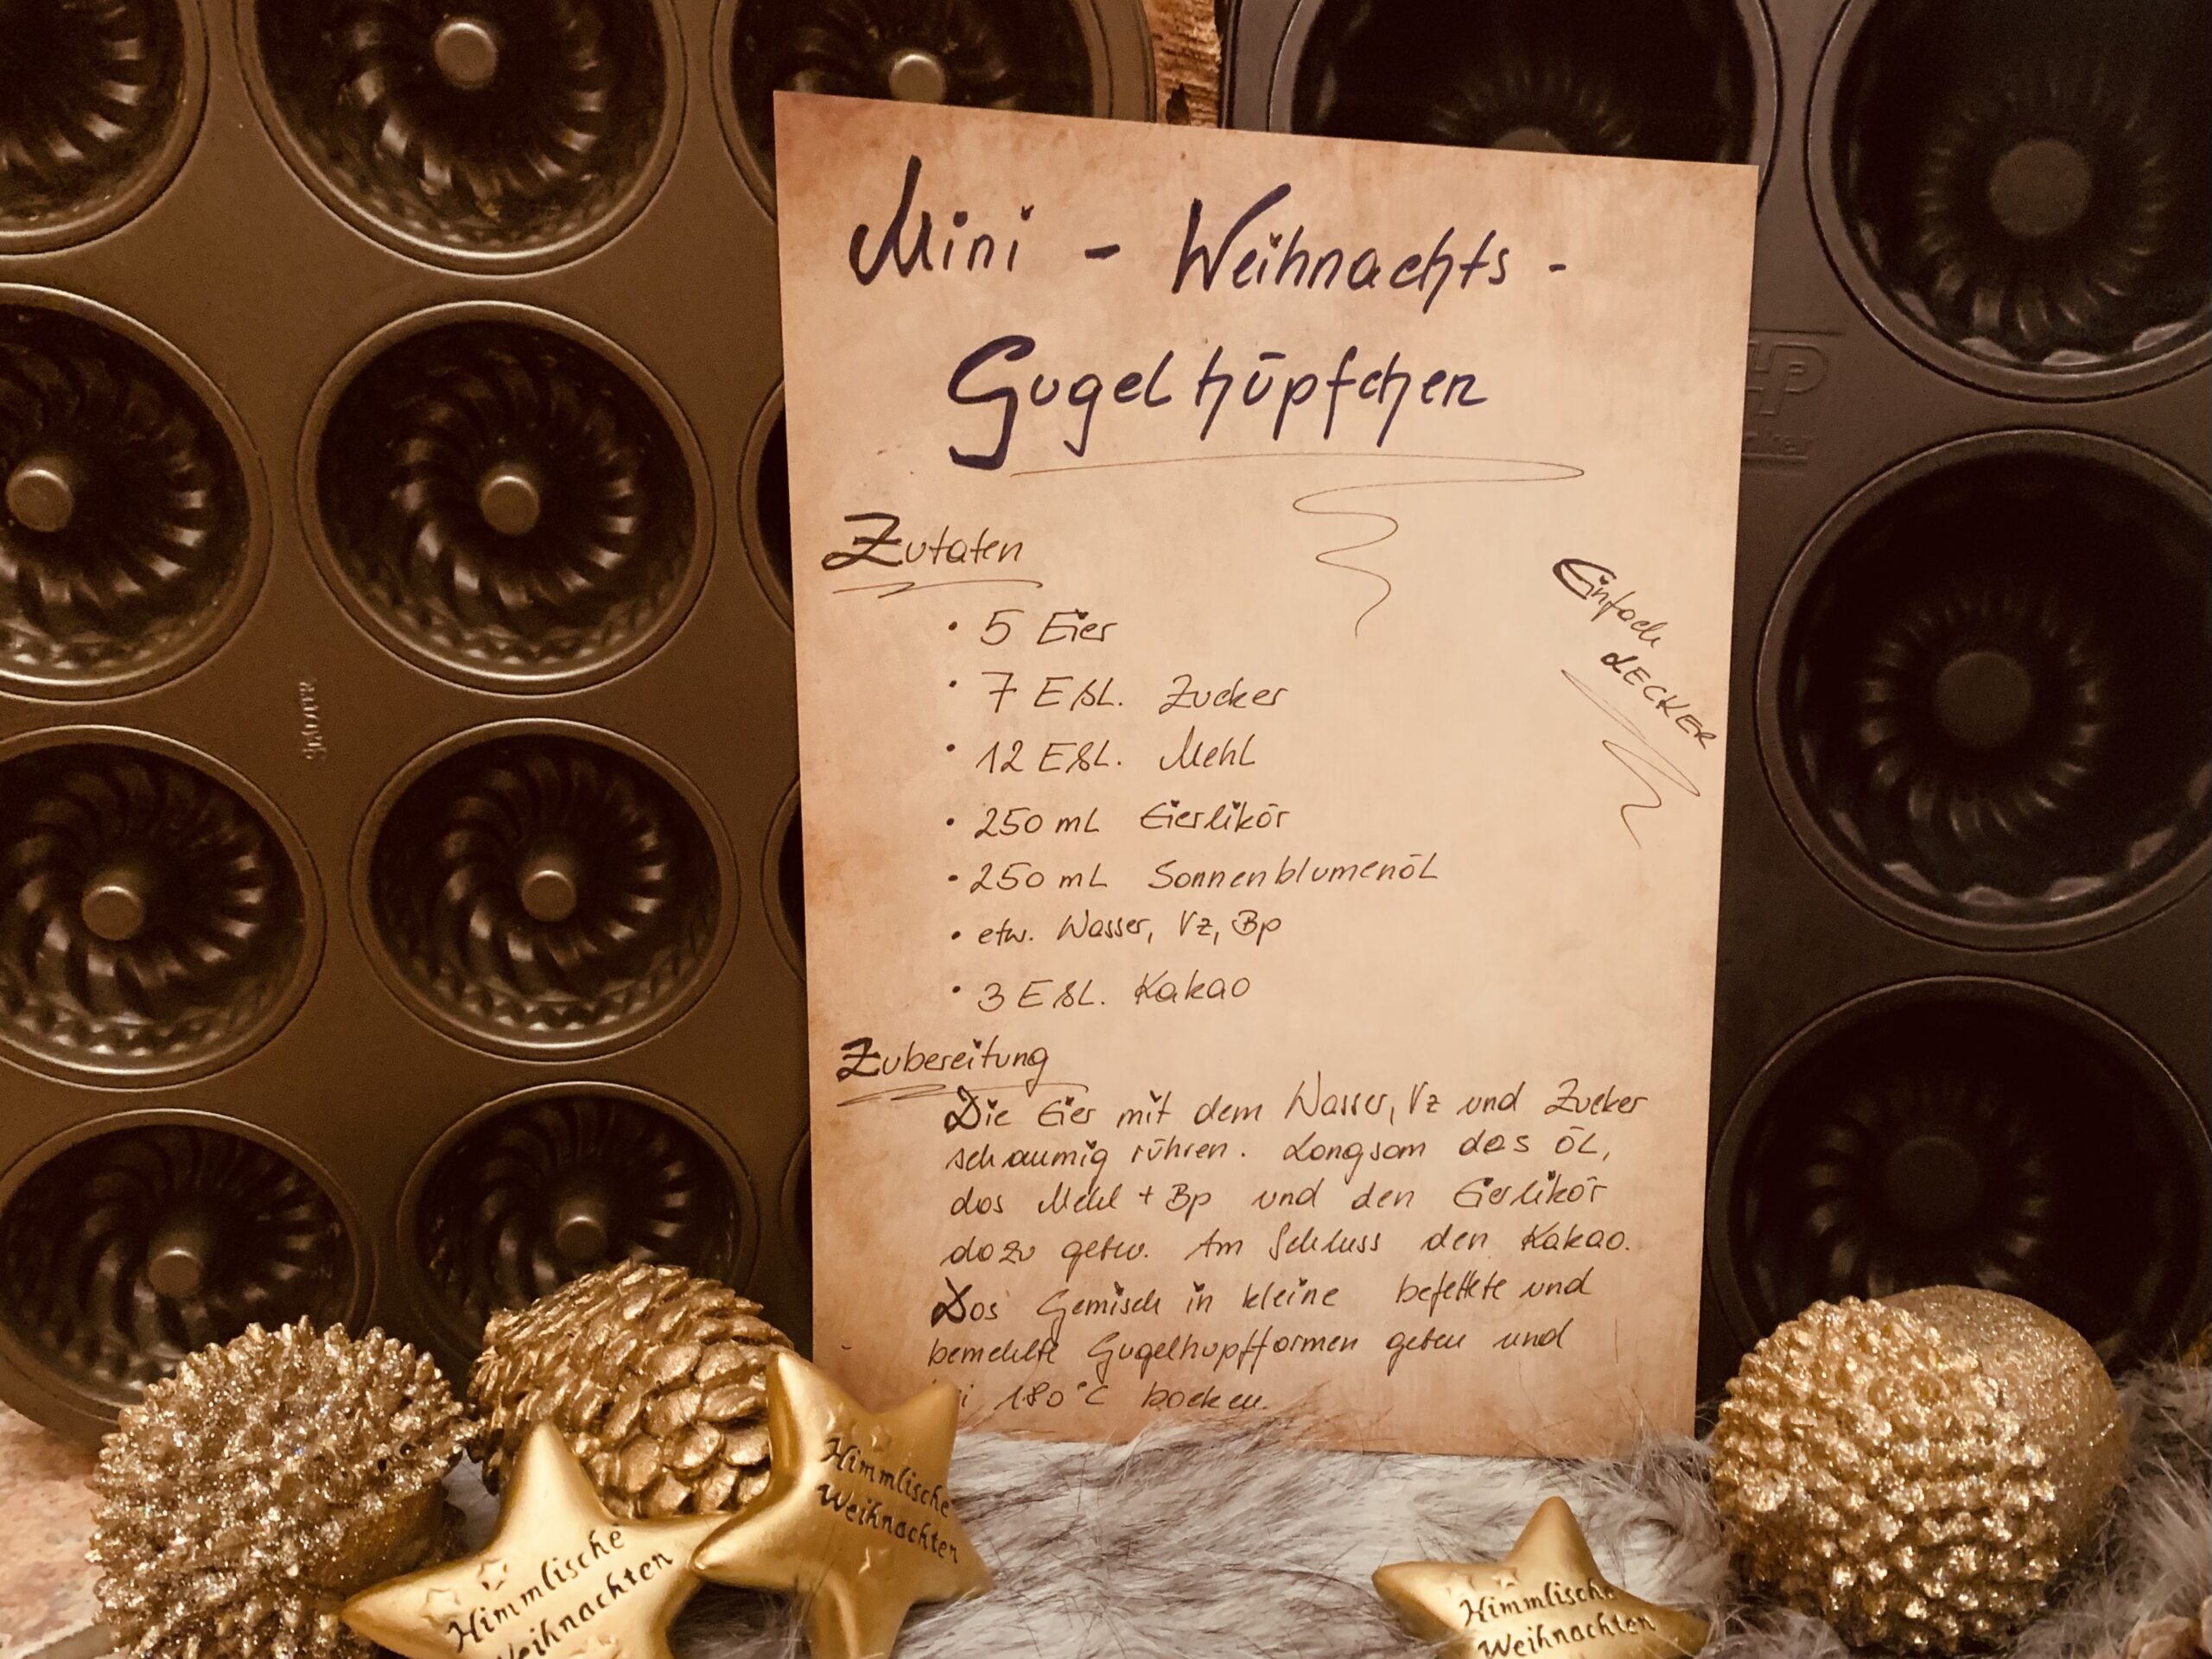 Mini - Weihnachts -
Gugelhüpfchen
Zutaten
• 5 Eier
• 7 Eßl. Zucker
• 12 Eßl. Mehl
• 250 ml Eierlikör
• 250 ml Sonnenblumenöl
• etw. Wasser, Vz, Bp
• 3 Eßl. Kakao
Einfach
LECKER
Zubereitung
Die Eier mit dem Wasser, Vz und Zucker
schaumig rühren. Langsam das Öl,
das Mehl + Bp und den Eierlikör
dazu geben. Am Schluss den Kakao.
Das Gemisch in kleine befettete und
bemehlte Gugelhupfformen geben und
180°C backen.
Himmlische
Weihnachten
Himmlische
Weihnachten
Himmlische
Weihnachten